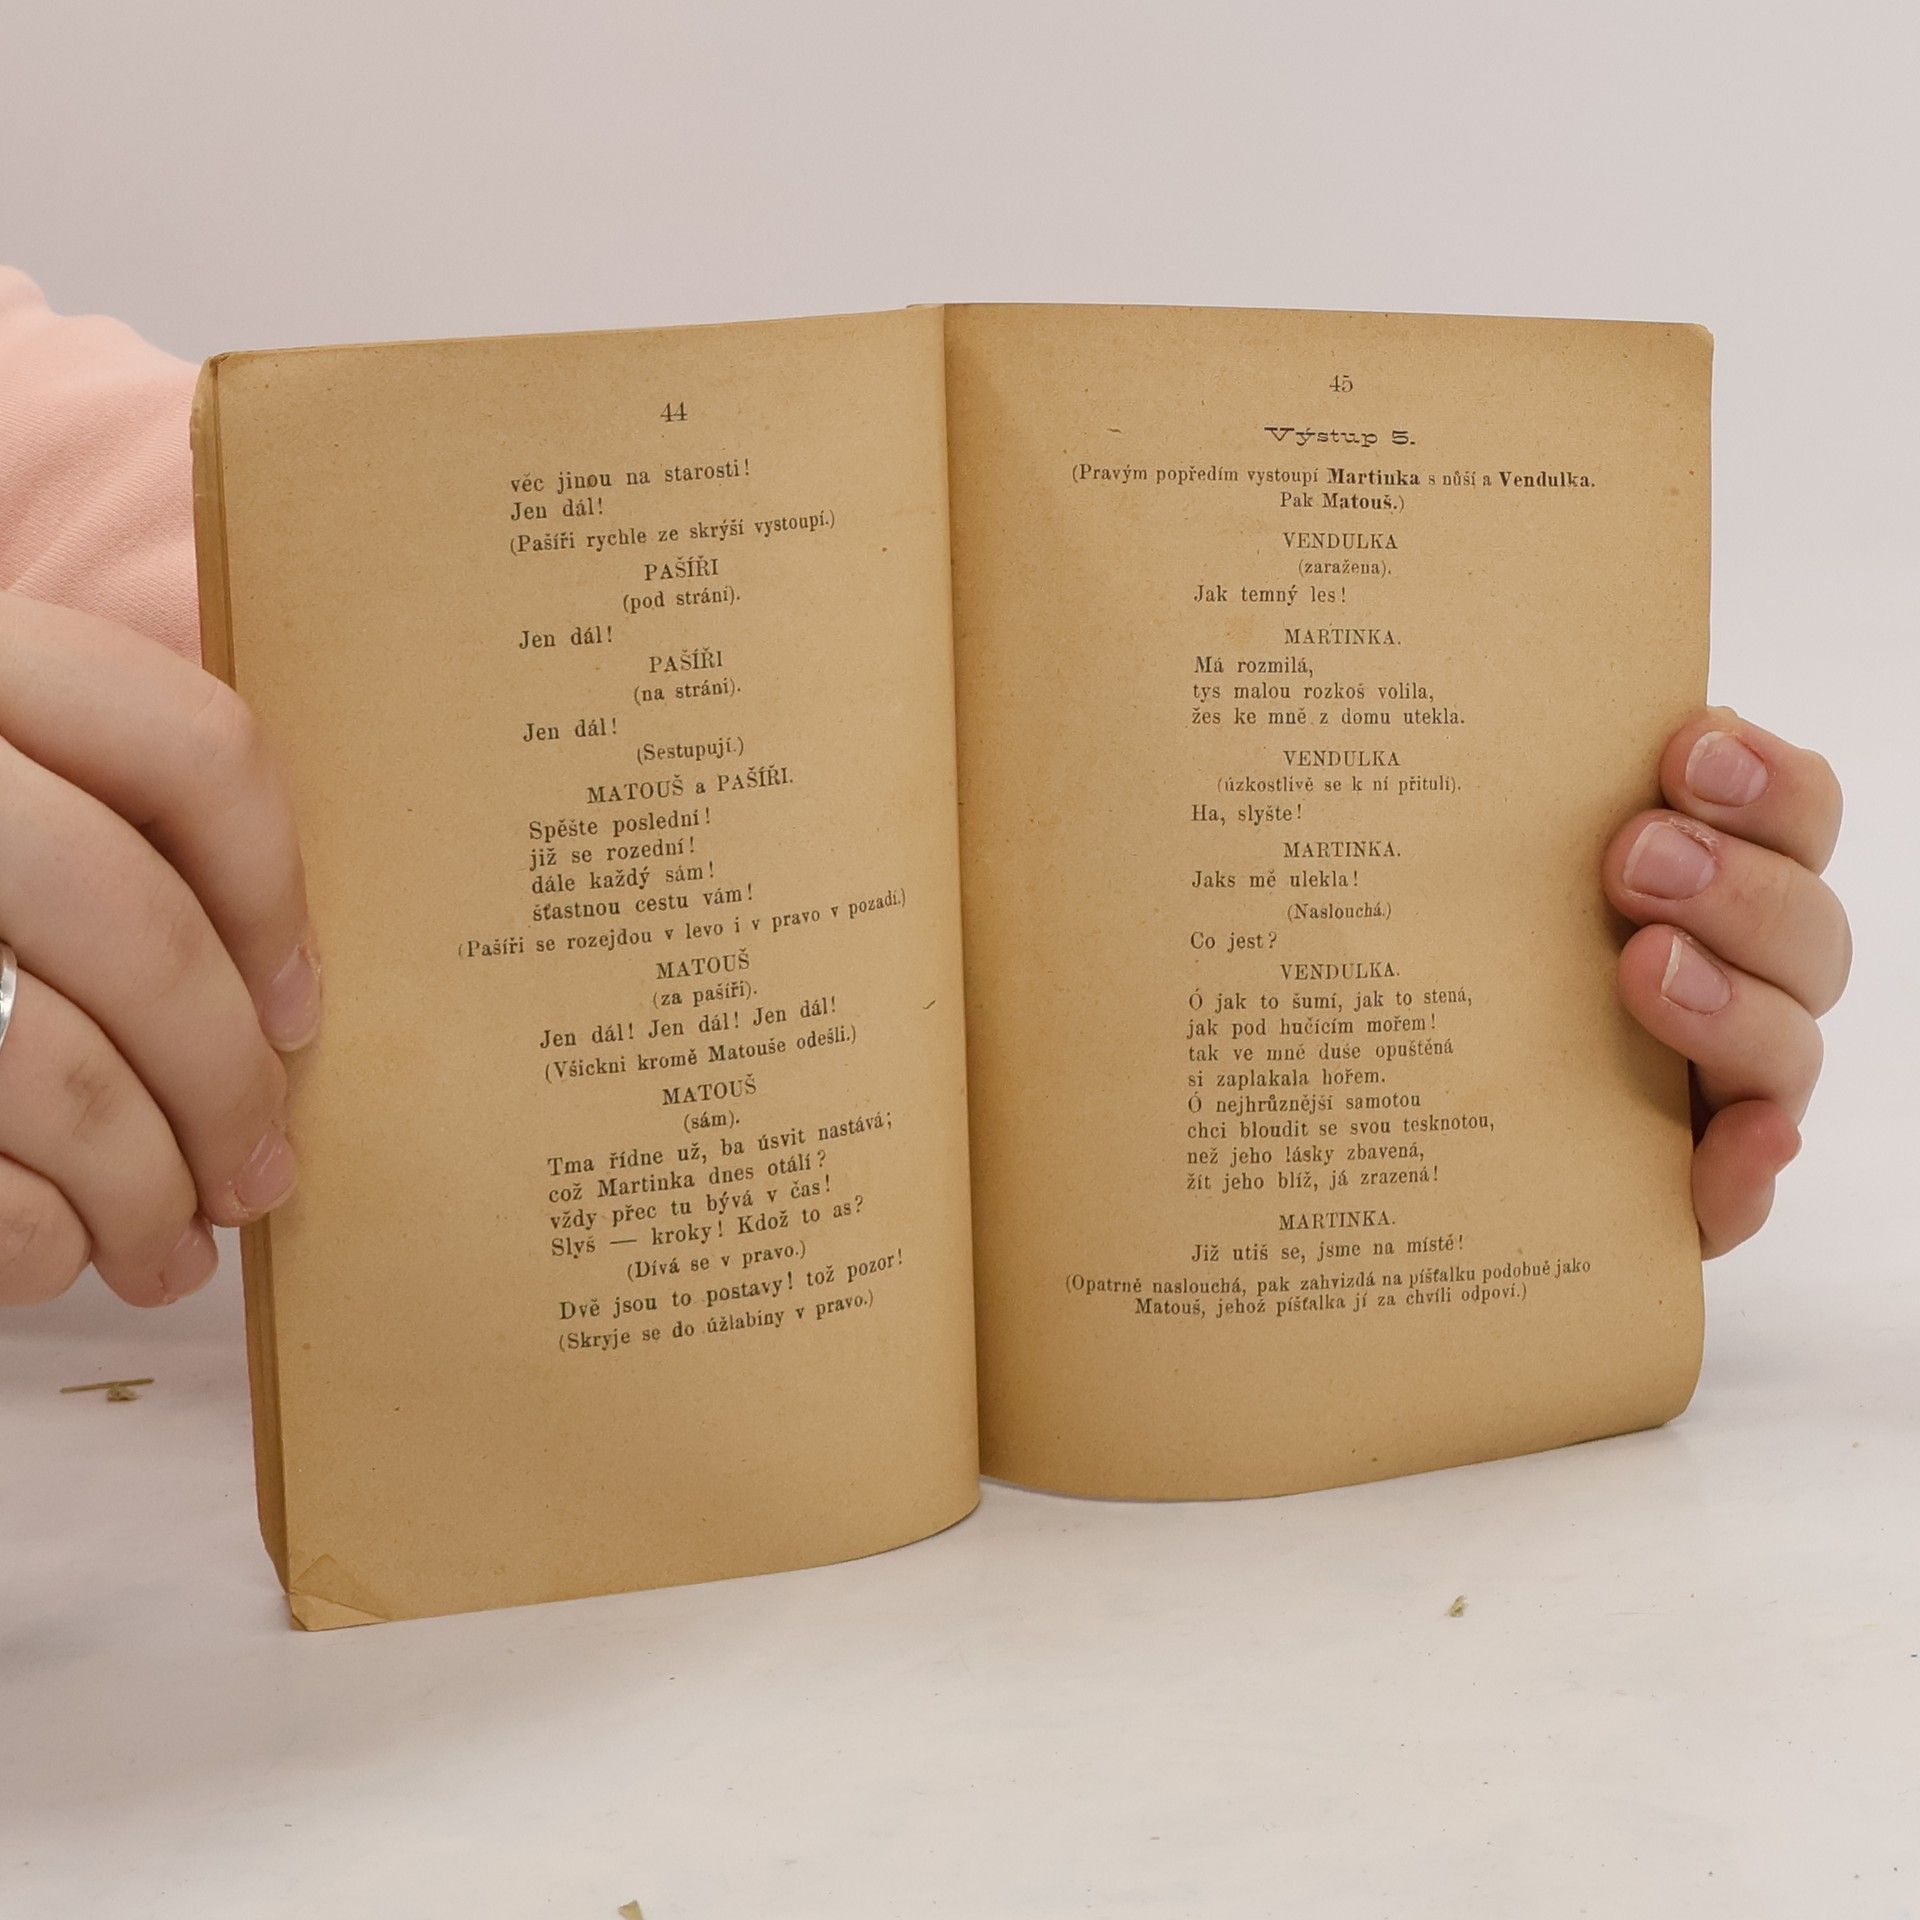 44
věc jinou na starosti!
Jen dál!
(Pašíři rychle ze skrýší vystoupí.)
PAŠÍŘI
(pod strání).
Jen dál!
PAŠÍŘI
(na stráni).
Jen dál!
(Sestupují.)
MATOUŠ a PAŠÍŘI.
Spěšte poslední!
již se rozední!
dále každý sám!
šťastnou cestu vám!
(Pašíři se rozejdou v levo i v pravo v pozadí.)
MATOUŠ
(za pašíři).
Jen dál! Jen dál! Jen dál!
(Všickni kromě Matouše odešli.)
MATOUŠ
(sám).
Tma řídne už, ba úsvit nastává;
což Martinka dnes otálí?
vždy přec tu bývá v čas!
Slyš — kroky! Kdož to as?
(Dívá se v pravo.)
Dvě jsou to postavy! tož pozor!
(Skryje se do úžlabiny v pravo.)
45
Výstup 5.
(Pravým popředím vystoupí Martinka s nůší a Vendulka.
Pak Matouš.)
VENDULKA
(zaražena).
Jak temný les!
MARTINKA.
Má rozmilá,
tys malou rozkoš volila,
žes ke mně z domu utekla.
VENDULKA
(úzkostlivě se k ní přitulí).
Ha, slyšte!
MARTINKA.
Jaks mě ulekla!
(Naslouchá.)
Co jest?
VENDULKA.
Ó jak to šumí, jak to stená,
jak pod hučícím mořem!
tak ve mně duše opuštěná
si zaplakala hořem.
Ó nejhrůznější samotou
chci bloudit se svou tesknotou,
než jeho lásky zbavená,
žít jeho blíž, já zrazená!
MARTINKA.
Již utiš se, jsme na místě!
(Opatrně naslouchá, pak zahvizdá na píšťalku podobně jako
Matouš, jehož píšťalka jí za chvíli odpoví.)